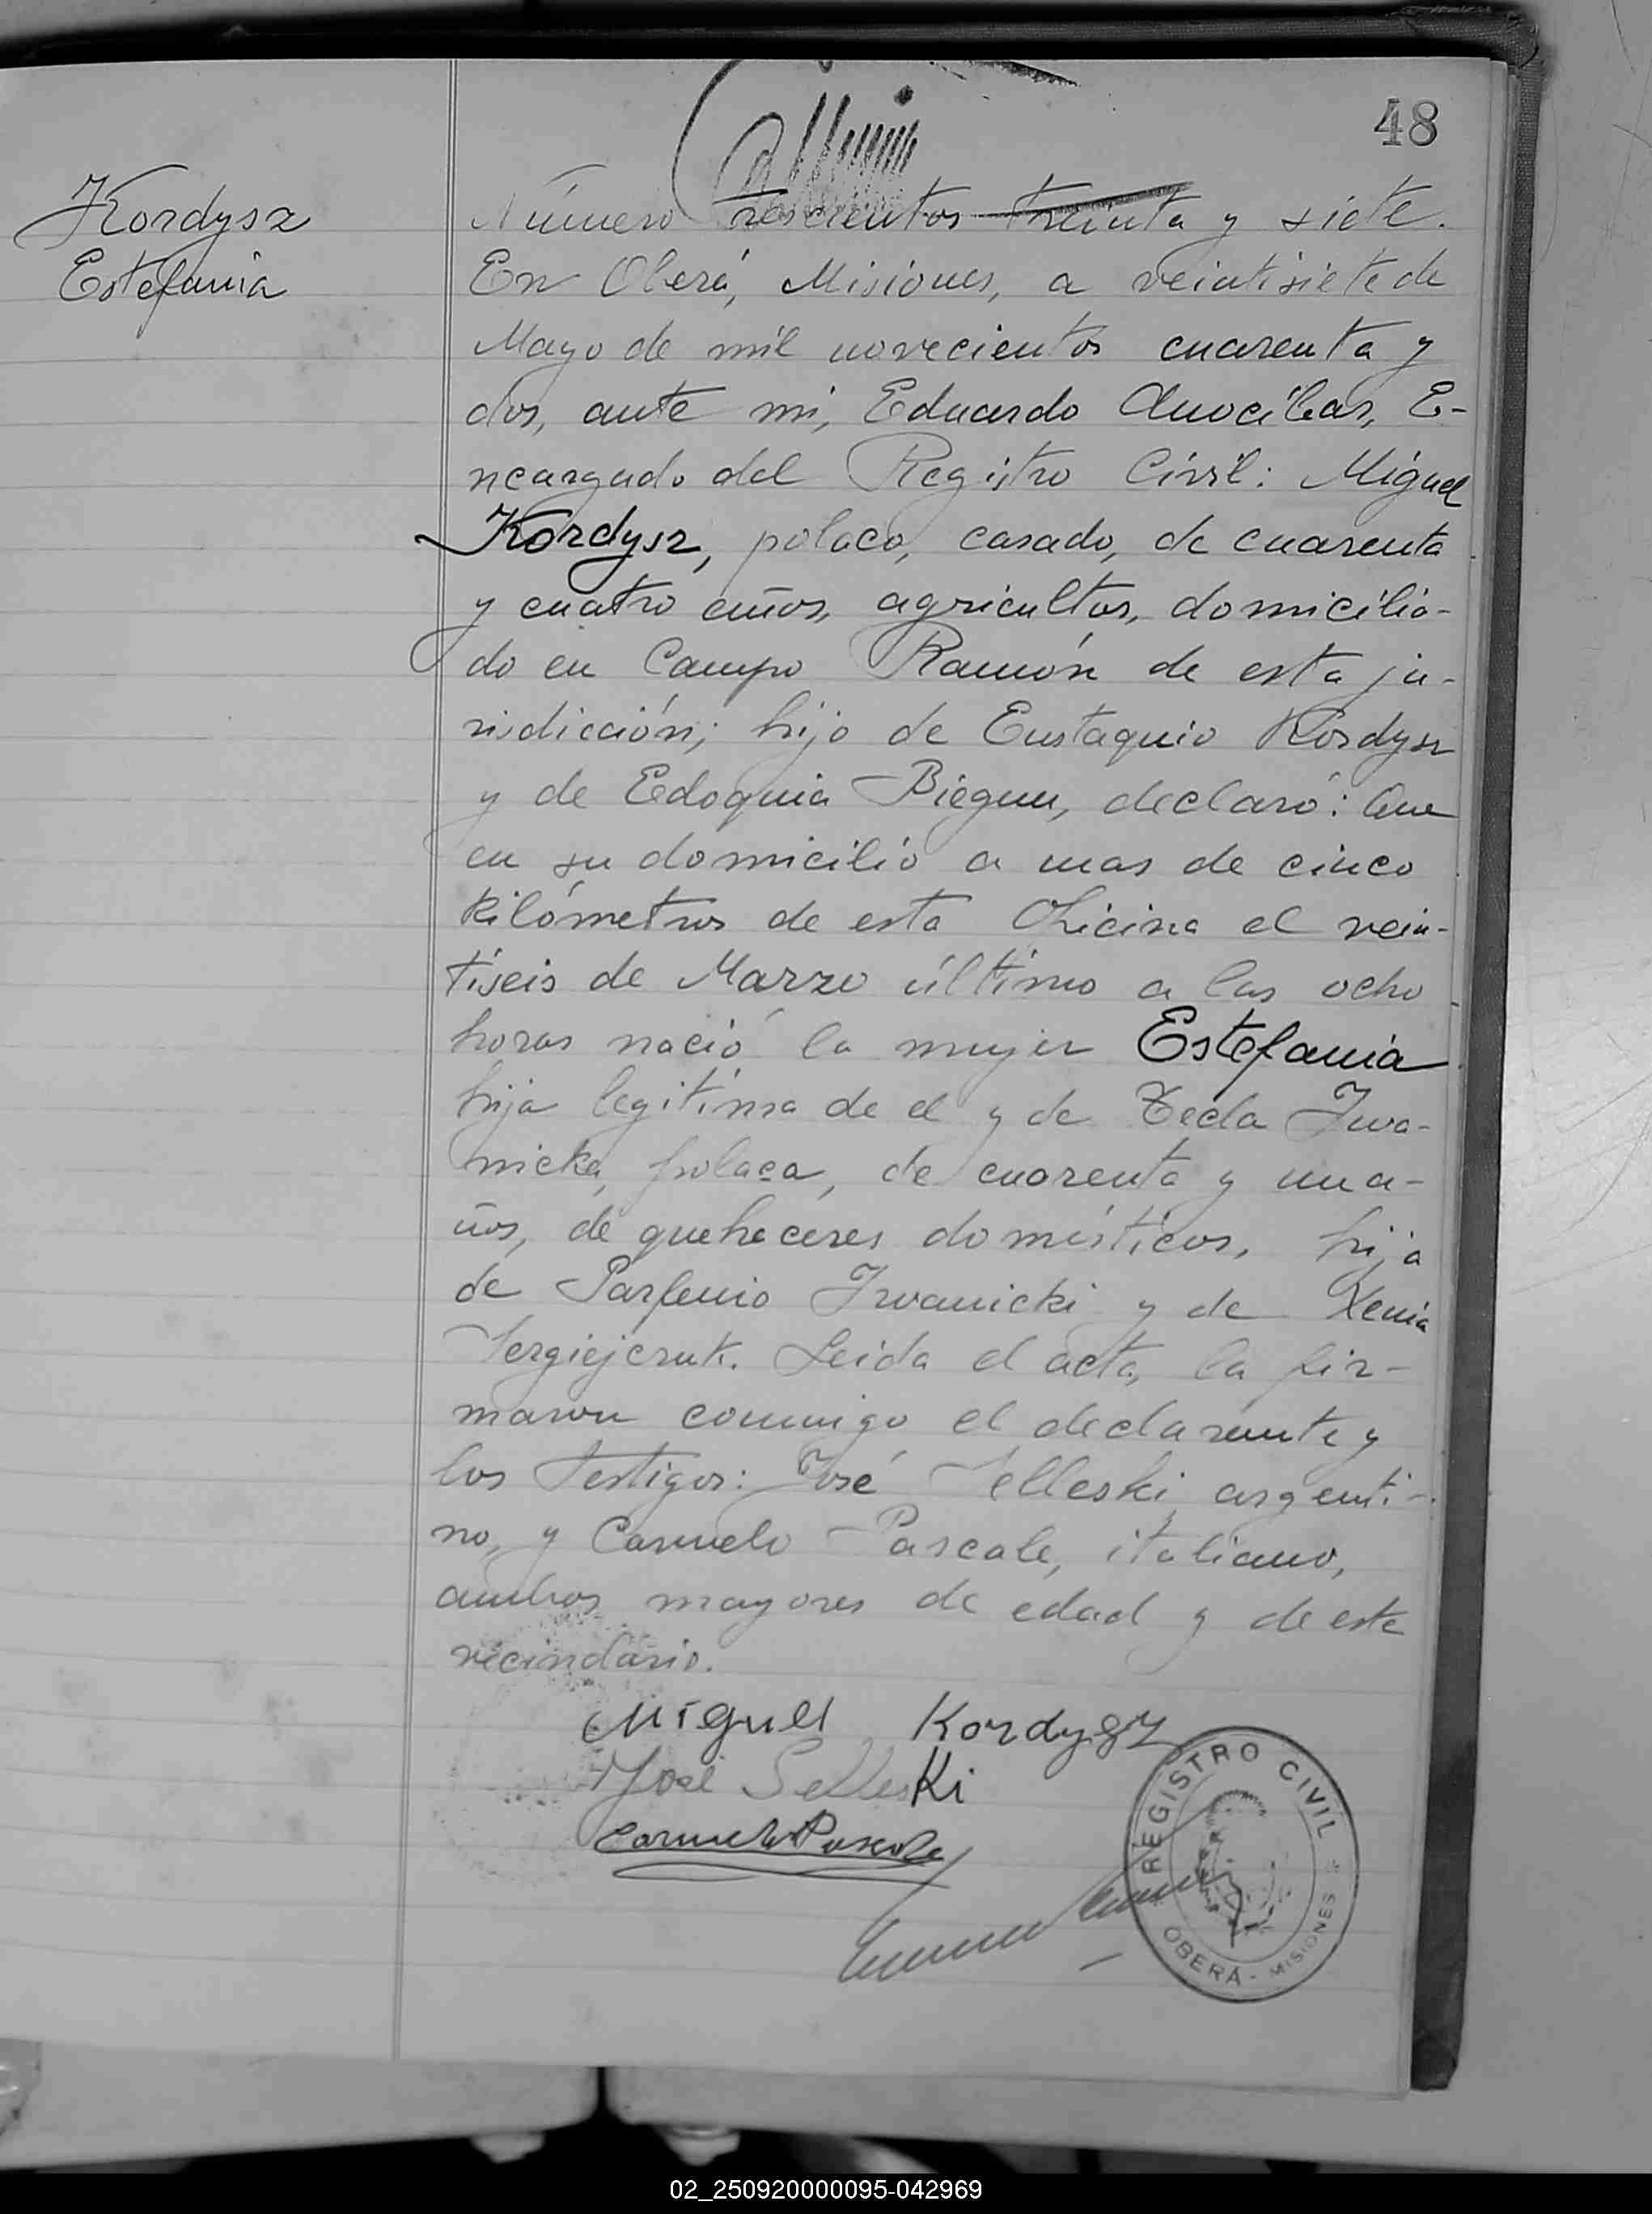 48
Kordysz
Estefania
Número trescientos treinta y siete.
En Oberá, Misiones, a veintisiete de
Mayo de mil novecientos cuarenta y
dos, ante mi, Eduardo Anocíbar, E-
ncargado del Registro Civil: Miguel
Kordysz, polaco, casado, de cuarenta
y cuatro años, agricultor, domicilia-
do en Campo Ramón de esta ju-
risdicción; hijo de Eustaquio Kordysz
y de Edoquia Biegun, declaró: Que
en su domicilio a mas de cinco
kilómetros de esta Oficina el vein-
tiseis de Marzo último a las ocho
horas nació la mujer Estefania
hija legítima de el y de Tecla Iwa-
nicka, polaca, de cuarenta y un a-
ños, de quehaceres domésticos, hija
de Parfenio Iwanicki y de Xenia
Sergiejczuk. Leida el acta, la fir-
maron conmigo el declarante y
los testigos: José Selleski, argenti-
no, y Carmelo Pascale, italiano,
ambos mayores de edad y de este
vecindario.
Miguel Kordysz
José Selleski
Carmelo Pascale
REGISTRO CIVIL
OBERÁ - MISIONES
02_250920000095-042969